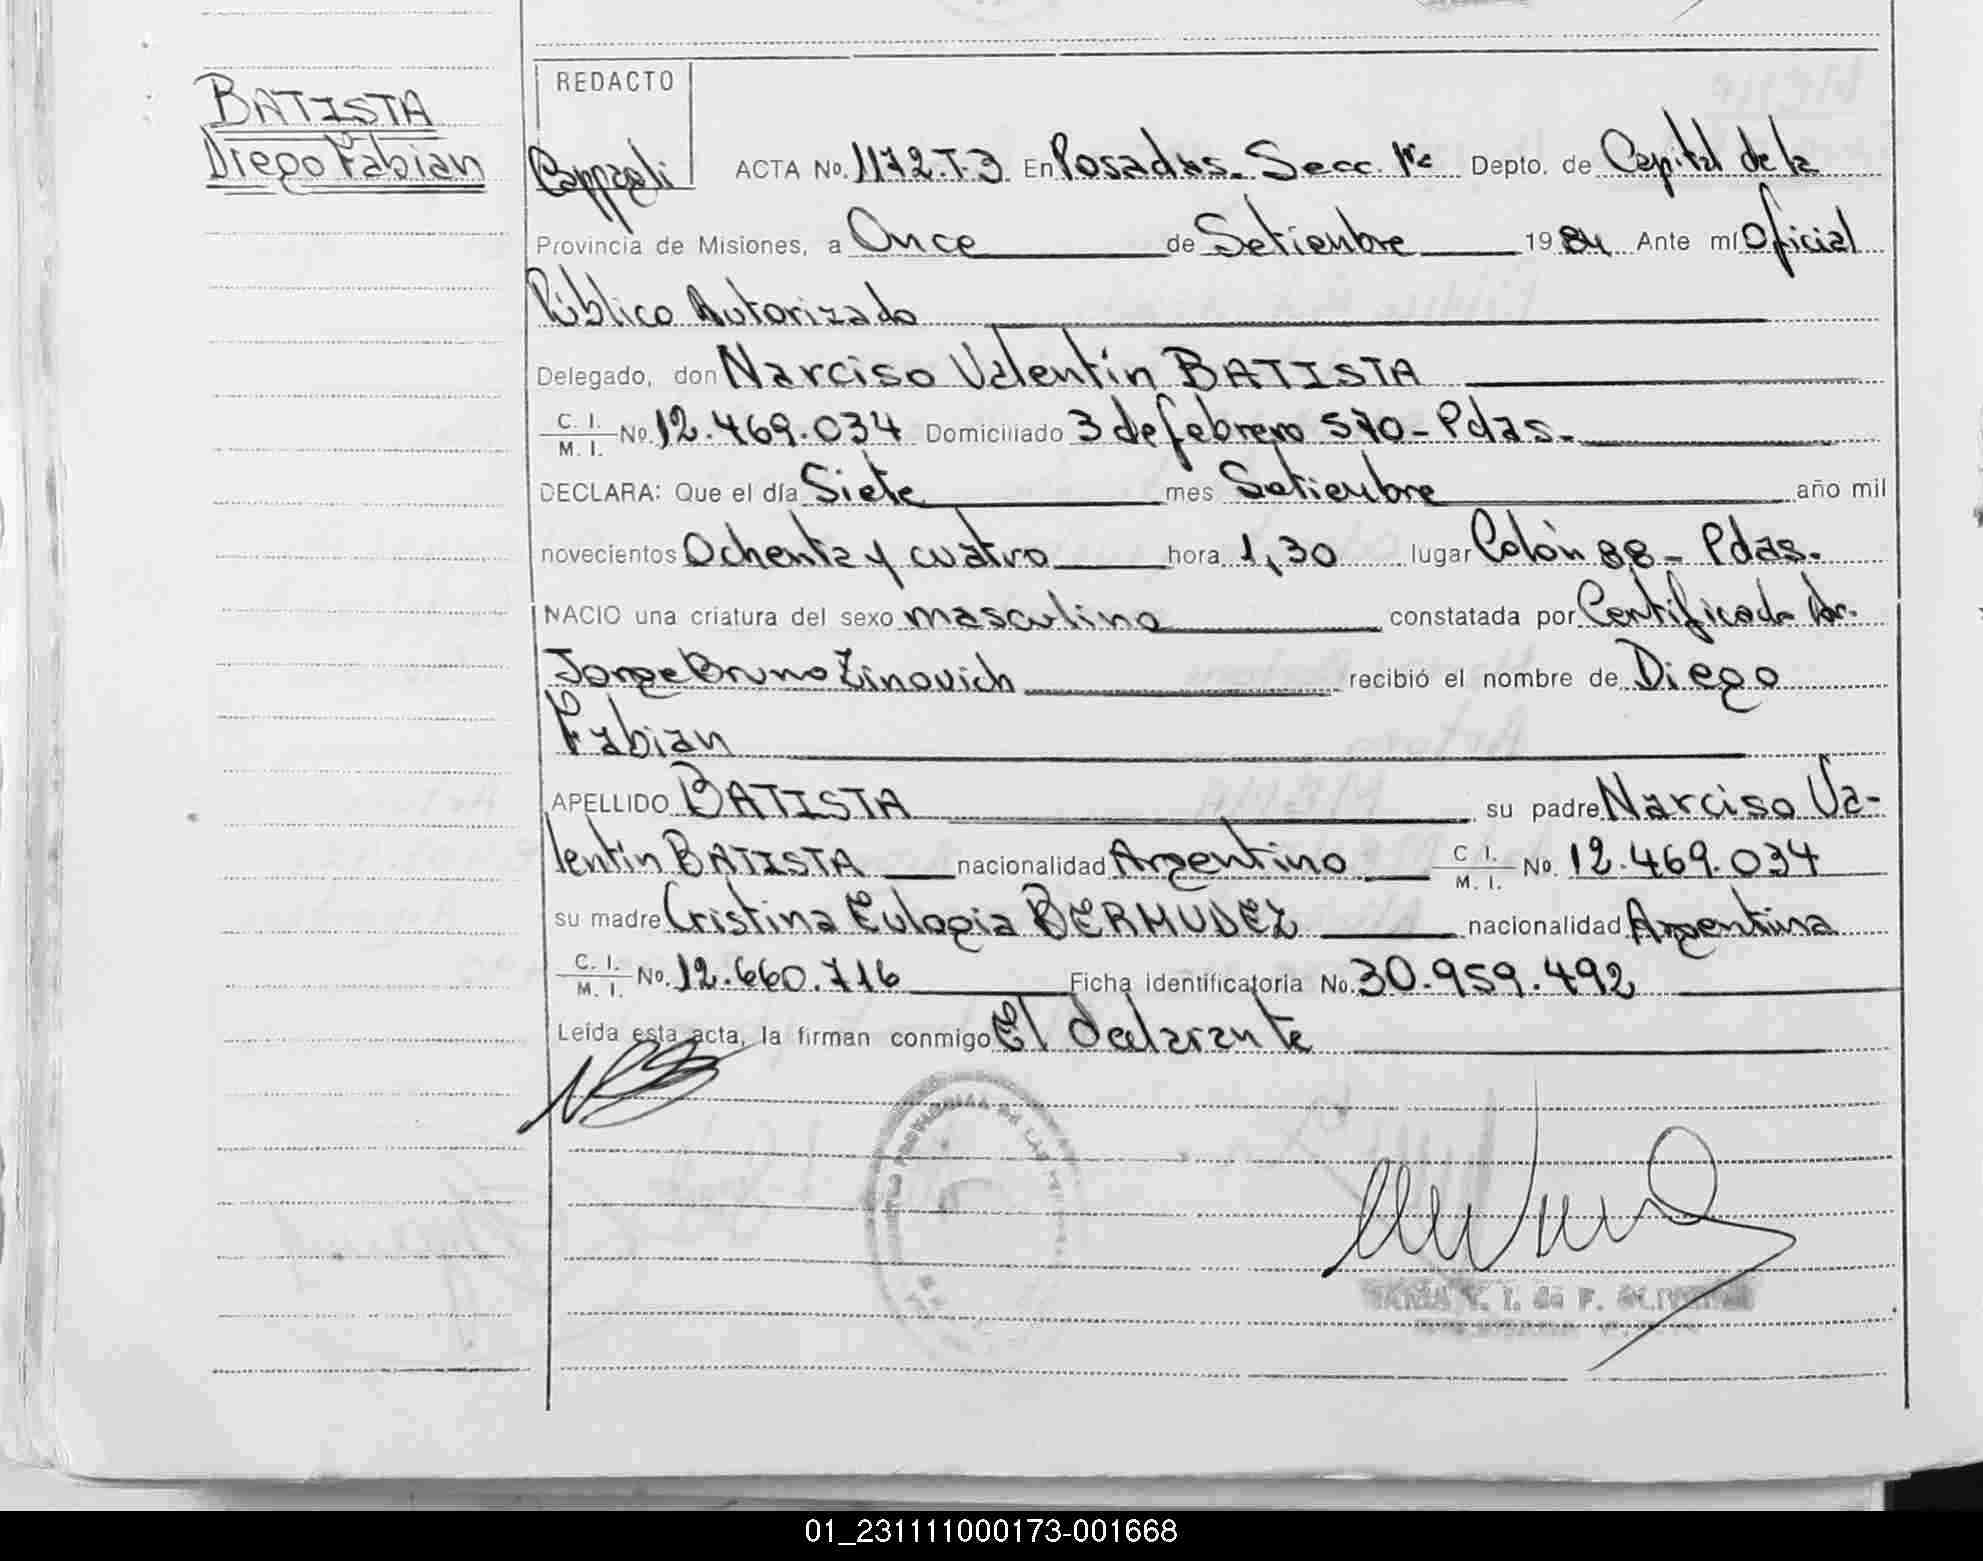 BATISTA
Diego Fabian
REDACTO
ACTA No. 1172.T.3 En Posadas. Secc. 1ra Depto. de Capital de la
Provincia de Misiones, a Once de Setiembre 1984 Ante mí Oficial
Público Autorizado
Delegado, don Narciso Valentín BATISTA
C. I. / M. I. No. 12.469.034 Domiciliado 3 de febrero 570 - Pdas.
DECLARA: Que el día Siete mes Setiembre año mil
novecientos Ochenta y cuatro hora 1,30 lugar Colón 88 - Pdas.
NACIO una criatura del sexo masculino constatada por Certificado Dr.
Jorge Bruno Zinovich recibió el nombre de Diego
Fabian
APELLIDO BATISTA su padre Narciso Va-
lentín BATISTA nacionalidad Argentino C. I. / M. I. No. 12.469.034
su madre Cristina Eulogia BERMUDEZ nacionalidad Argentina
C. I. / M. I. No. 12.660.716 Ficha identificatoria No. 30.959.492
Leída esta acta, la firman conmigo El declarante
01_231111000173-001668